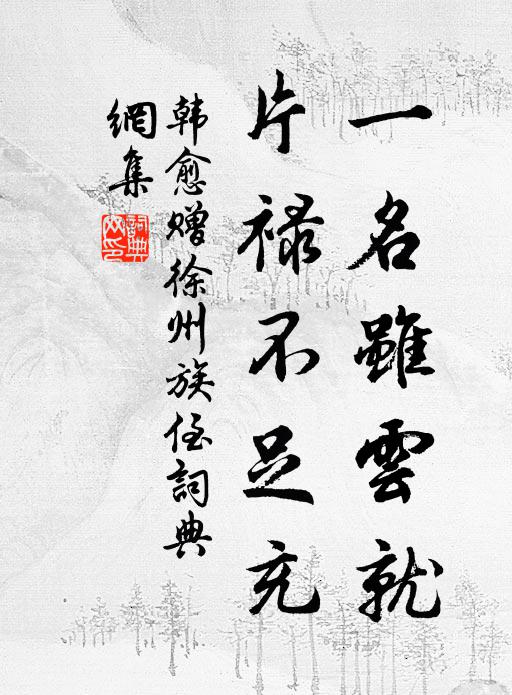 一名雖雲就
片祿不足充
韩愈赠徐州族侄詞典
網集
詞典
网印